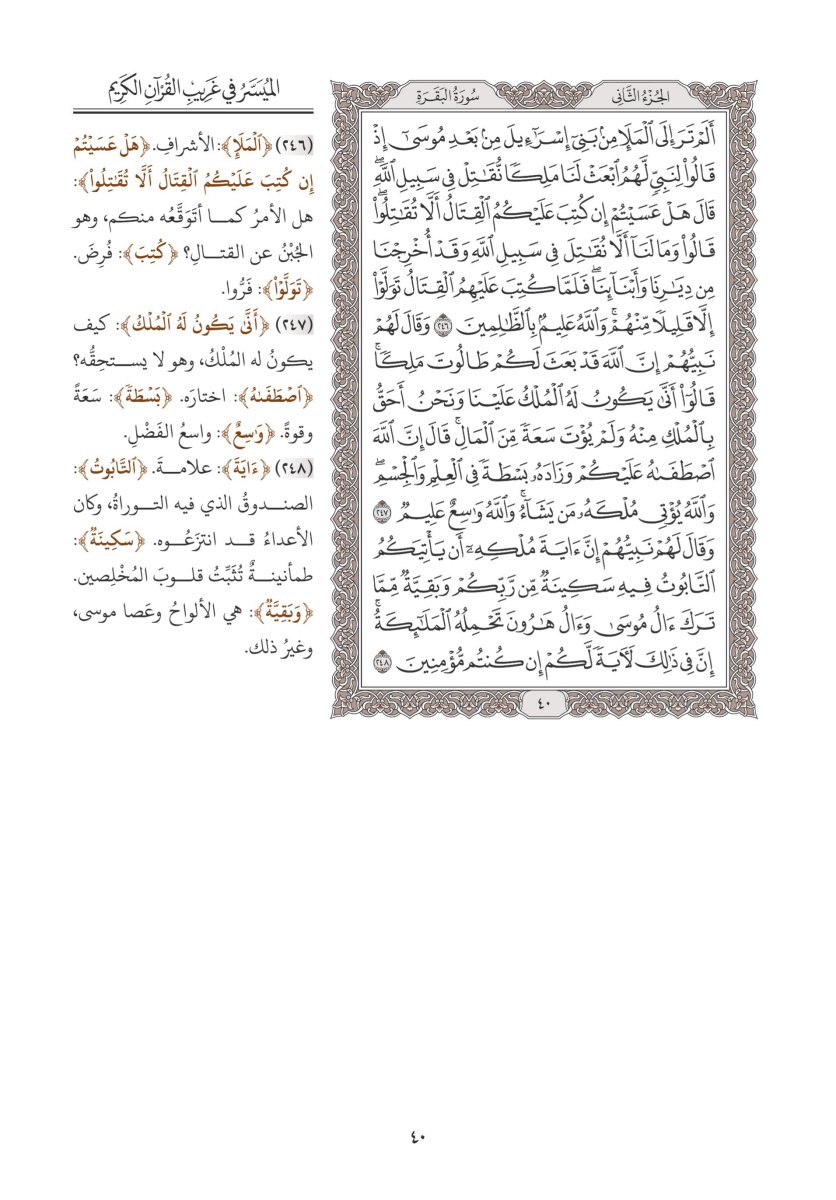 الجُزْءُ الثَّانِي
سُورَةُ البَقَرَةِ
أَلَمْ تَرَ إِلَى ٱلْمَلَإِ مِنۢ بَنِيٓ إِسْرَٰٓءِيلَ مِنۢ بَعْدِ مُوسَىٰٓ إِذْ
قَالُوا۟ لِنَبِيٍّ لَّهُمُ ٱبْعَثْ لَنَا مَلِكًا نُّقَٰتِلْ فِي سَبِيلِ ٱللَّهِۖ
قَالَ هَلْ عَسَيْتُمْ إِن كُتِبَ عَلَيْكُمُ ٱلْقِتَالُ أَلَّا تُقَٰتِلُوا۟ۖ
قَالُوا۟ وَمَا لَنَآ أَلَّا نُقَٰتِلَ فِي سَبِيلِ ٱللَّهِ وَقَدْ أُخْرِجْنَا
مِن دِيَٰرِنَا وَأَبْنَآئِنَاۖ فَلَمَّا كُتِبَ عَلَيْهِمُ ٱلْقِتَالُ تَوَلَّوْا۟
إِلَّا قَلِيلًا مِّنْهُمْۚ وَٱللَّهُ عَلِيمٌۢ بِٱلظَّٰلِمِينَ ٢٤٦ وَقَالَ لَهُمْ
نَبِيُّهُمْ إِنَّ ٱللَّهَ قَدْ بَعَثَ لَكُمْ طَالُوتَ مَلِكًاۚ
قَالُوٓا۟ أَنَّىٰ يَكُونُ لَهُ ٱلْمُلْكُ عَلَيْنَا وَنَحْنُ أَحَقُّ
بِٱلْمُلْكِ مِنْهُ وَلَمْ يُؤْتَ سَعَةً مِّنَ ٱلْمَالِۚ قَالَ إِنَّ ٱللَّهَ
ٱصْطَفَىٰهُ عَلَيْكُمْ وَزَادَهُۥ بَسْطَةً فِي ٱلْعِلْمِ وَٱلْجِسْمِۖ
وَٱللَّهُ يُؤْتِي مُلْكَهُۥ مَن يَشَآءُۚ وَٱللَّهُ وَٰسِعٌ عَلِيمٌ ٢٤٧
وَقَالَ لَهُمْ نَبِيُّهُمْ إِنَّ ءَايَةَ مُلْكِهِۦٓ أَن يَأْتِيَكُمُ
ٱلتَّابُوتُ فِيهِ سَكِينَةٌ مِّن رَّبِّكُمْ وَبَقِيَّةٌ مِّمَّا
تَرَكَ ءَالُ مُوسَىٰ وَءَالُ هَٰرُونَ تَحْمِلُهُ ٱلْمَلَٰٓئِكَةُۚ
إِنَّ فِي ذَٰلِكَ لَءَايَةً لَّكُمْ إِن كُنتُم مُّؤْمِنِينَ ٢٤٨
٤٠
المُيَسَّرُ في غَرِيبِ القُرْآنِ الكَرِيمِ
(٢٤٦) ﴿ٱلْمَلَإِ﴾: الأشرافِ. ﴿هَلْ عَسَيْتُمْ
إِن كُتِبَ عَلَيْكُمُ ٱلْقِتَالُ أَلَّا تُقَٰتِلُوا۟﴾:
هل الأمرُ كما أتوَقَّعُه منكم، وهو
الجُبْنُ عن القتالِ؟ ﴿كُتِبَ﴾: فُرِضَ.
﴿تَوَلَّوْا۟﴾: فَرُّوا.
(٢٤٧) ﴿أَنَّىٰ يَكُونُ لَهُ ٱلْمُلْكُ﴾: كيف
يكونُ له المُلْكُ، وهو لا يستحِقُّه؟
﴿ٱصْطَفَىٰهُ﴾: اختارَه. ﴿بَسْطَةً﴾: سَعَةً
وقوةً. ﴿وَٰسِعٌ﴾: واسعُ الفَضْلِ.
(٢٤٨) ﴿ءَايَةَ﴾: علامةَ. ﴿ٱلتَّابُوتُ﴾:
الصندوقُ الذي فيه التوراةُ، وكان
الأعداءُ قد انتزَعُوه. ﴿سَكِينَةٌ﴾:
طمأنينةٌ تُثَبِّتُ قلوبَ المُخْلِصين.
﴿وَبَقِيَّةٌ﴾: هي الألواحُ وعَصا موسى،
وغيرُ ذلك.
٤٠